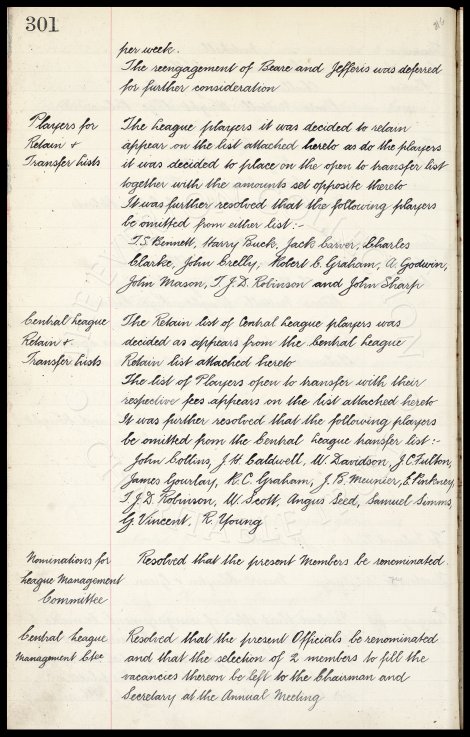 301
per week.
The reengagement of Beare and Jefferis was deferred
for further consideration
Players for
Retain +
Transfer Lists
The League players it was decided to retain
appear on the list attached hereto as do the players
it was decided to place on the open to transfer list
together with the amounts set opposite thereto
It was further resolved that the following players
be omitted from either list:-
T.S. Bennett, Harry Buck, Jack Carver, Charles
Clarke, John Crelly, Robert C. Graham, A. Godwin,
John Mason, T.J.D. Robinson and John Sharp
Central League
Retain +
Transfer Lists
The Retain list of Central League players was
decided as appears from the Central League
Retain list attached hereto
The list of Players open to transfer with their
respective fees appears on the list attached hereto
It was further resolved that the following players
be omitted from the Central League transfer list:-
John Collins, J.H. Caldwell, W. Davidson, J.C. Fulton,
James Gourlay, R.C. Graham, J.B. Meunier,
T.J.D. Robinson, W. Scott, Angus Seed, Samuel Simms,
G. Vincent, R. Young
Nominations for
League Management
Committee
Resolved that the present Members be renominated
Central League
Management Ctee
Resolved that the present Officials be renominated
and that the selection of 2 members to fill the
vacancies thereon be left to the Chairman and
Secretary at the Annual Meeting